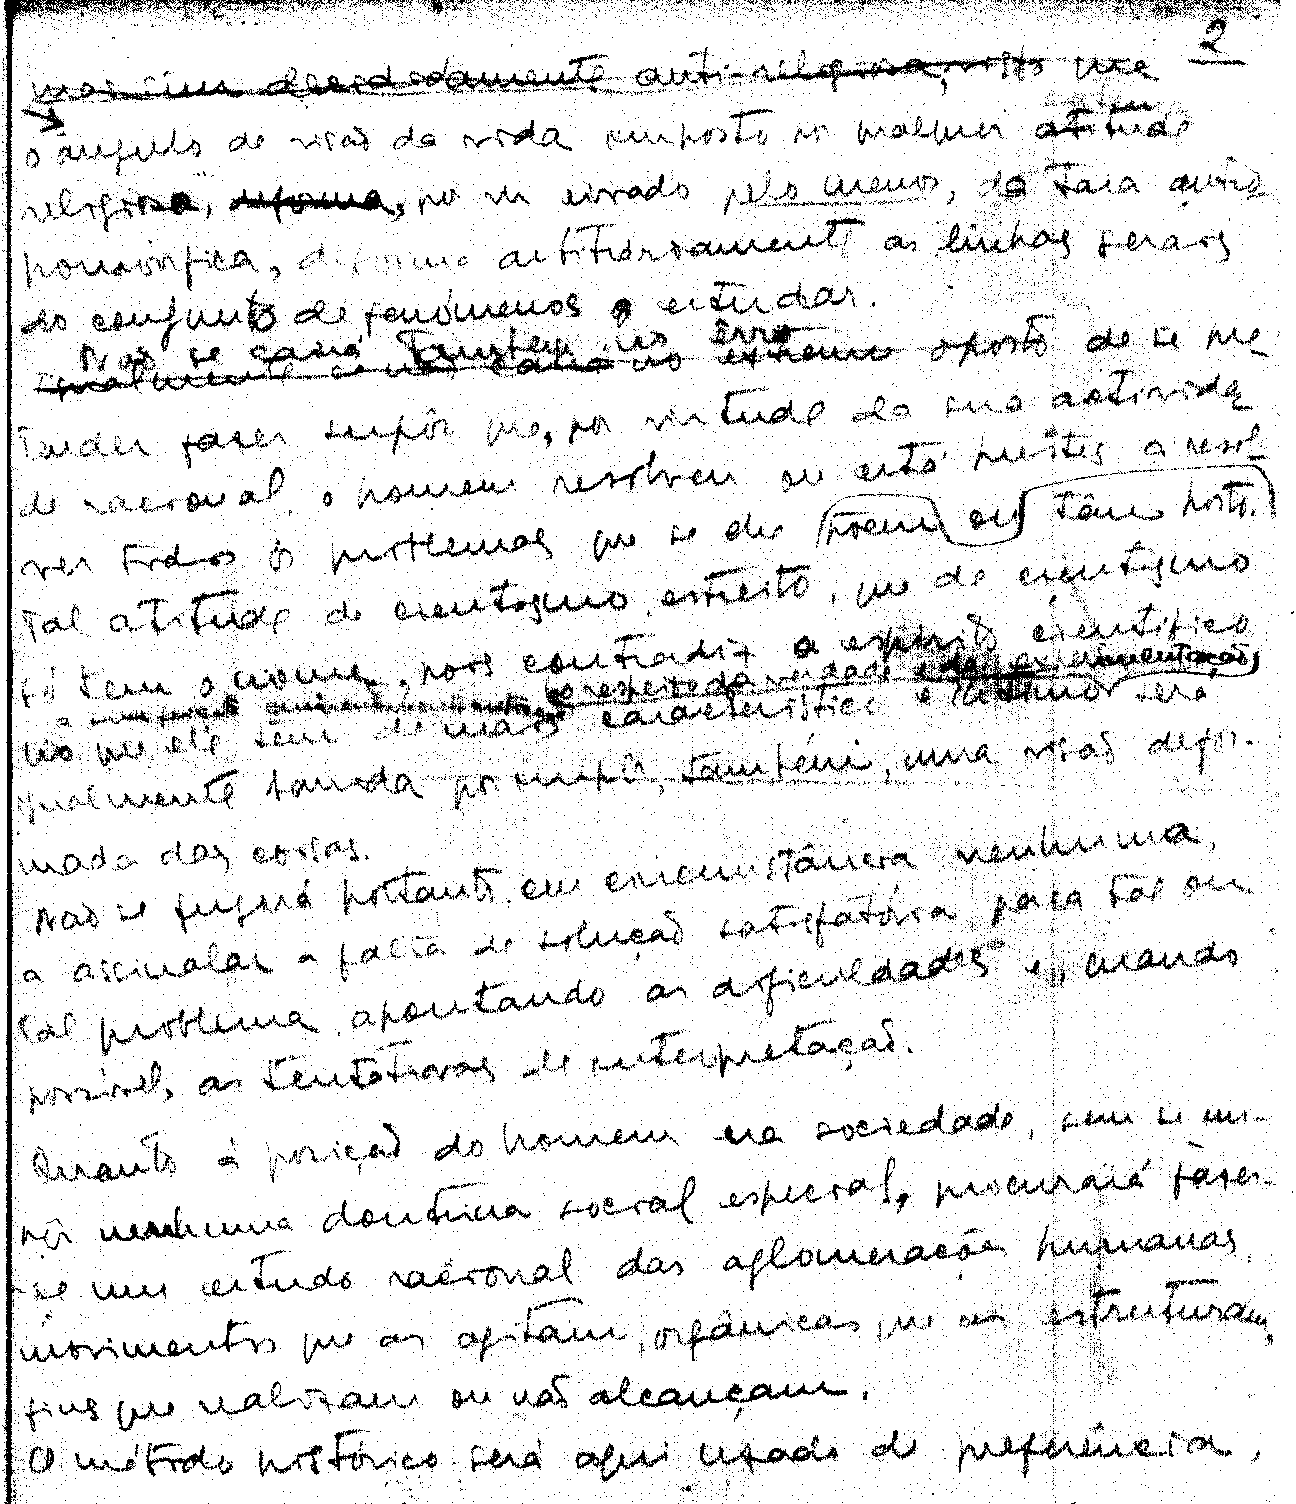 2
mas sim decididamente anti-religiosa, visto que
o ângulo de visão da vida imposto por qualquer atitude
religiosa, deforma, por vir eivado pelo menos, da tara antro-
pomórfica, deforma arbitrariamente as linhas gerais
do conjunto de fenómenos a estudar.
Não se cairá também no êrro
igualmente se não cairá no extremo oposto de se pre-
tender fazer supôr que, por virtude da sua activida-
de racional, o homem resolveu ou está prestes a resol-
ver todos os problemas que se lhe põem ou têm posto.
Tal atitude de cientismo estreito, que de cientismo
só tem o nome, pois contradiz o espírito científico
o respeito da verdade e da experimentação
no que ele tem de mais característico e melhor será
igualmente banida por impôr, também, uma visão defor-
mada das coisas.
Não se fugirá portanto, em circunstância nenhuma,
a assinalar a falta de solução satisfatória para tal ou
tal problema, apontando as dificuldades e, quando
possível, as tentativas de interpretação.
Quanto à posição do homem na sociedade, sem se im-
pôr nenhuma doutrina social especial, procurará fazer-
-se um estudo racional das aglomerações humanas,
movimentos que as agitam, orgânicas que as estruturam,
fins que realizam ou não alcançam.
O método histórico será aqui usado de preferência,